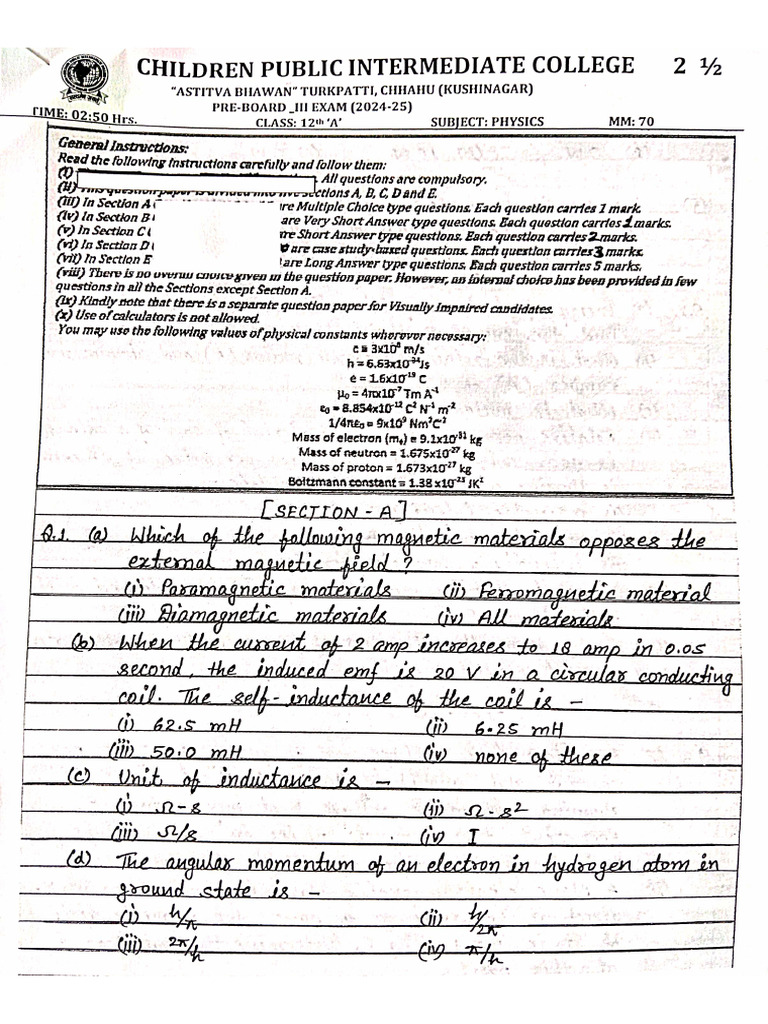 CHILDREN PUBLIC INTERMEDIATE COLLEGE 2 ½
"ASTITVA BHAWAN" TURKPATTI, CHHAHU (KUSHINAGAR)
PRE-BOARD_III EXAM (2024-25)
TIME: 02:50 Hrs. CLASS: 12th 'A' SUBJECT: PHYSICS MM: 70
General Instructions:
Read the following instructions carefully and follow them:
(i) . All questions are compulsory.
(ii) This question paper is divided into five sections A, B, C, D and E.
(iii) In Section A are Multiple Choice type questions. Each question carries 1 mark.
(iv) In Section B are Very Short Answer type questions. Each question carries 1 marks.
(v) In Section C are Short Answer type questions. Each question carries 2 marks.
(vi) In Section D are case study-based questions. Each question carries 3 marks.
(vii) In Section E are Long Answer type questions. Each question carries 5 marks.
(viii) There is no overall choice given in the question paper. However, an internal choice has been provided in few
questions in all the Sections except Section A.
(ix) Kindly note that there is a separate question paper for Visually Impaired candidates.
(x) Use of calculators is not allowed.
You may use the following values of physical constants wherever necessary:
c = 3x10⁸ m/s
h = 6.63x10⁻³⁴Js
e = 1.6x10⁻¹⁹ C
μ₀ = 4πx10⁻⁷ Tm A⁻¹
ε₀ = 8.854x10⁻¹² C² N⁻¹ m⁻²
1/4πε₀ = 9x10⁹ Nm²C⁻²
Mass of electron (mₑ) = 9.1x10⁻³¹ kg
Mass of neutron = 1.675x10⁻²⁷ kg
Mass of proton = 1.673x10⁻²⁷ kg
Boltzmann constant = 1.38 x10⁻²³ JK¹
[SECTION - A]
Q.1. (a) Which of the following magnetic materials opposes the
external magnetic field ?
(i) Paramagnetic materials (ii) Ferromagnetic material
(iii) Diamagnetic materials (iv) All materials
(b) When the current of 2 amp increases to 18 amp in 0.05
second, the induced emf is 20 V in a circular conducting
coil. The self-inductance of the coil is -
(i) 62.5 mH (ii) 6.25 mH
(iii) 50.0 mH (iv) none of these
(c) Unit of inductance is -
(i) Ω-s (ii) Ω-s²
(iii) Ω/s (iv) I
(d) The angular momentum of an electron in hydrogen atom in
ground state is -
(i) h/π (ii) h/2π
(iii) 2π/h (iv) π/h